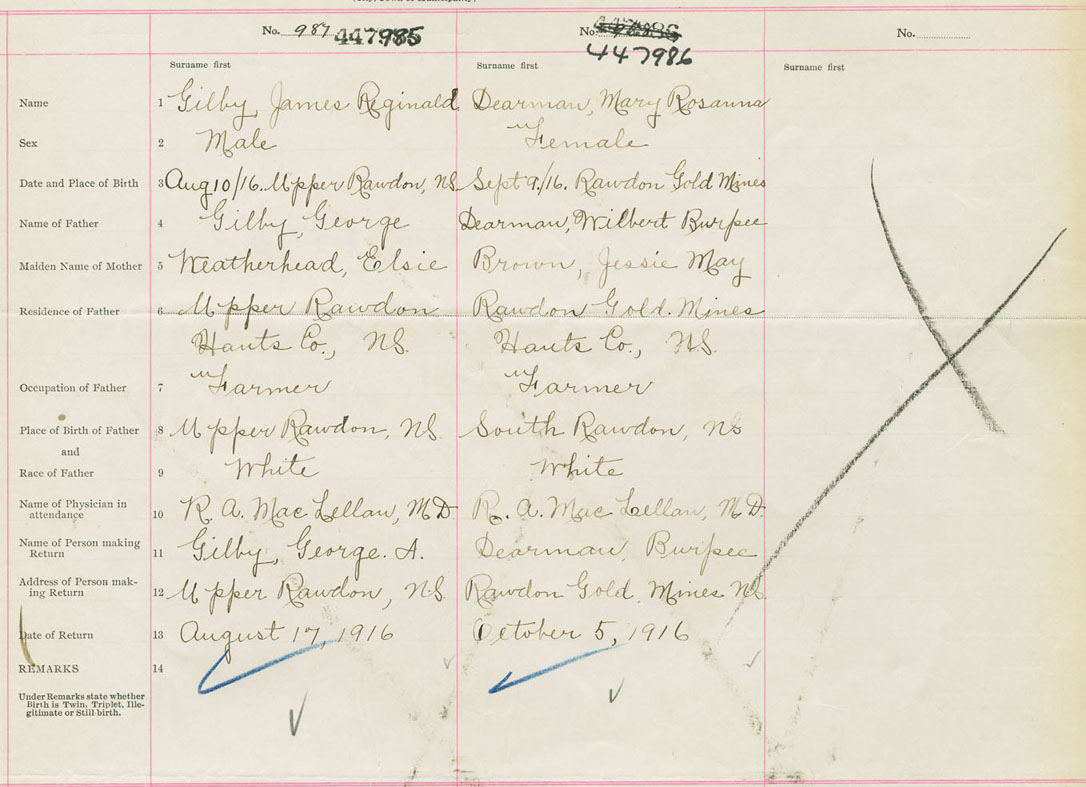 No. 987 447985 No. 447986 No.
Surname first Surname first Surname first
Name 1 Gilby, James Reginald Dearman, Mary Rosanna
Sex 2 Male " Female
Date and Place of Birth 3 Aug 10/16. Upper Rawdon, NS Sept 9./16. Rawdon Gold Mines
Name of Father 4 Gilby, George Dearman, Wilbert Burpee
Maiden Name of Mother 5 Weatherhead, Elsie Brown, Jessie May
Residence of Father 6 Upper Rawdon Rawdon Gold. Mines
Hants Co., NS. Hants Co., NS.
Occupation of Father 7 " Farmer " Farmer
Place of Birth of Father 8 Upper Rawdon, NS. South Rawdon, NS
and
Race of Father 9 White White
Name of Physician in
attendance 10 R. A. Mac Lellan, M.D. R. A. Mac Lellan, M.D.
Name of Person making
Return 11 Gilby, George. A. Dearman, Burpee
Address of Person mak-
ing Return 12 Upper Rawdon, N.S. Rawdon Gold. Mines NS
Date of Return 13 August 17, 1916 October 5, 1916
REMARKS 14
Under Remarks state whether
Birth is Twin, Triplet, Ille-
gitimate or Still-birth.